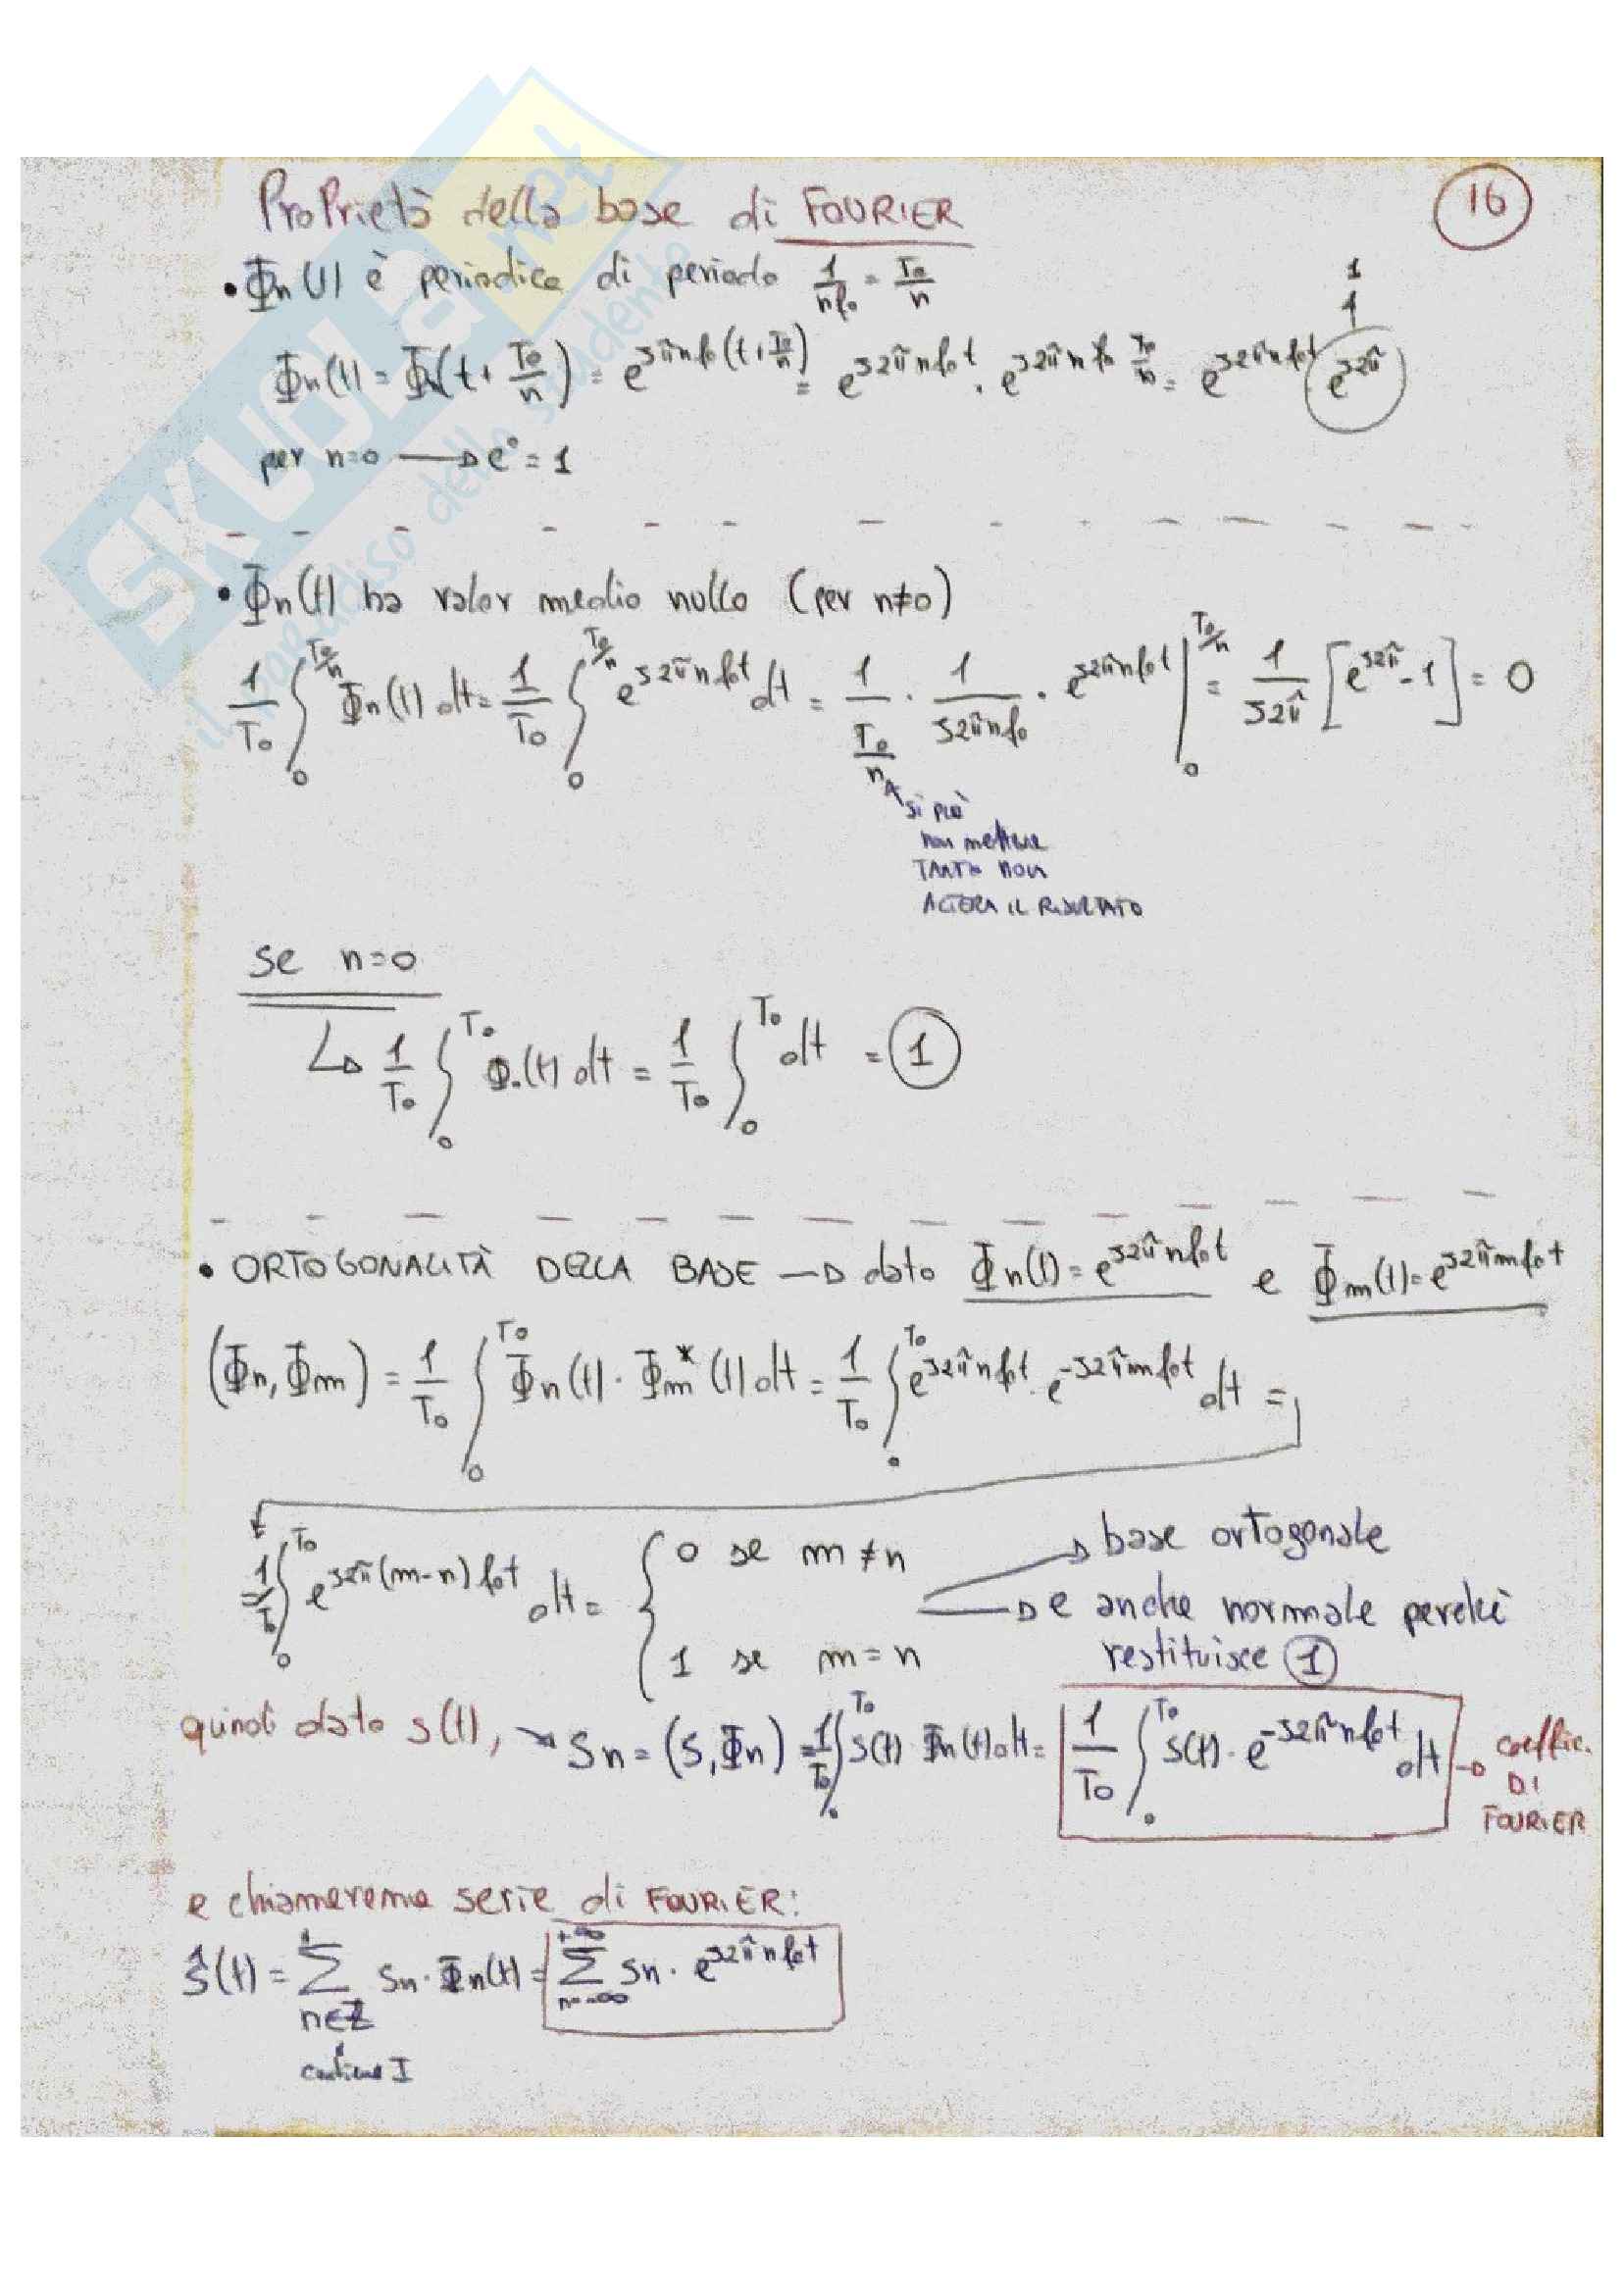 16
Proprietà della base di FOURIER
• Φn(t) è periodica di periodo 1/nf₀ = T₀/n
1
1
Φn(t) = Φn(t + T₀/n) = e^jπnf₀(t+T₀/n) = e^j2πnf₀t · e^j2πnf₀ T₀/n = e^j2πnf₀t e^j2π
per n=0 → e⁰ = 1
• Φn(t) ha valor medio nullo (per n≠0)
1/T₀ ∫₀^T₀/n Φn(t) dt = 1/T₀ ∫₀^T₀/n e^j2πnf₀t dt = 1/(T₀/n) · 1/j2πnf₀ · e^j2πnf₀t |₀^T₀/n = 1/j2π [e^j2π - 1] = 0
si può
non mettere
TANTO NON
ALTERA IL RISULTATO
se n=0
↳ 1/T₀ ∫₀^T₀ Φ₀(t) dt = 1/T₀ ∫₀^T₀ dt = 1
• ORTOGONALITÀ DELLA BASE → dato Φn(t) = e^j2πnf₀t e Φm(t) = e^j2πmf₀t
(Φn, Φm) = 1/T₀ ∫₀^T₀ Φn(t) · Φm*(t) dt = 1/T₀ ∫₀^T₀ e^j2πnf₀t · e^-j2πmf₀t dt =
= 1/T₀ ∫₀^T₀ e^j2π(m-n)f₀t dt = { 0 se m ≠ n → base ortogonale
1 se m = n → e anche normale perchè
restituisce 1
quindi dato s(t), → Sn = (S, Φn) = 1/T₀ ∫₀^T₀ S(t) · Φn(t) dt = 1/T₀ ∫₀^T₀ S(t) · e^-j2πnf₀t dt → coeffic.
DI
FOURIER
e chiameremo serie di FOURIER:
ŝ(t) = Σ n∈Z Sn · Φn(t) = Σ n=-∞ +∞ Sn · e^j2πnf₀t
contiene I
SKUOLA.net
il paradiso dello studente